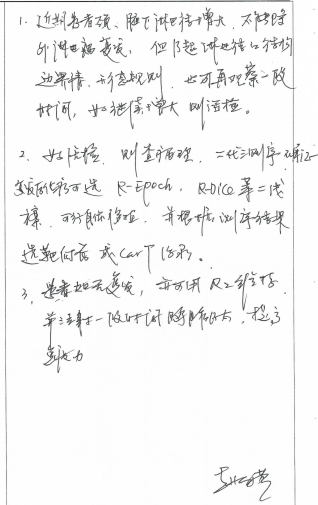 1. 近期患者颈、腋下淋巴结增大，不能除
外淋巴瘤复发，但B超淋巴结结构
边界清，形态规则，也可再观察一段
时间，如继续增大则活检。
2. 如活检，则查病理，二代测序，
复发后可选 R-Epoch，R-Dice 等二线
，可行自体移植，并根据测序结果
选靶向药或CarT治疗。
3. 患者如无复发，亦可用R2维持
一段时间，提高
免疫力